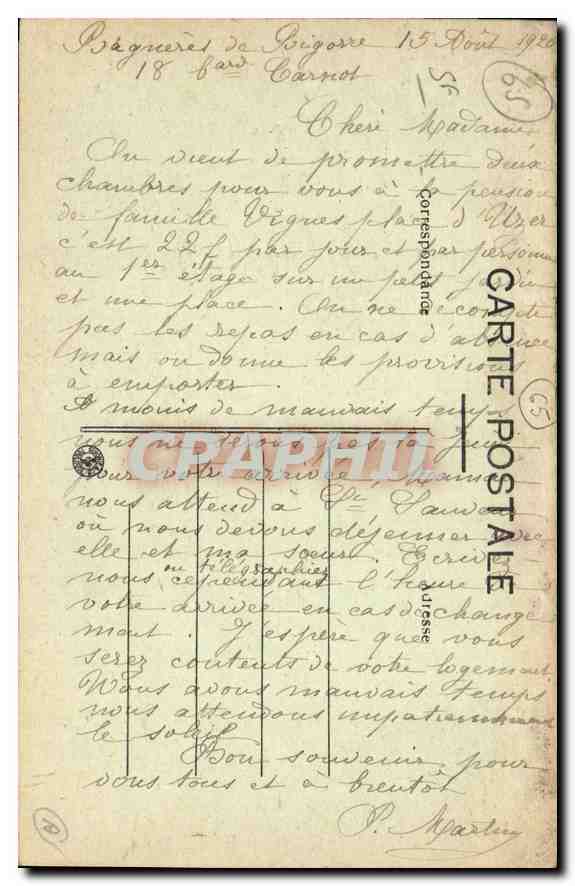 Bagnères de Bigorre 15 Août 1920
18 bard Carnot
Chère Madame
On vient de promettre deux
chambres pour vous à la pension
de famille Vignes place d'Uzer
c'est 22f par jour et par personne
au 1er étage sur un petit jardin
et une place. On ne décompte
pas les repas en cas d'absence
mais on donne les provisions
à emporter.
A moins de mauvais temps
nous ne serons pas là
pour votre arrivée, Maman
nous attend à St Sauveur
où nous devons déjeuner avec
elle et ma sœur. Ecrivez
ou télégraphiez
nous cependant l'heure de
votre arrivée en cas de change
ment. J'espère que vous
serez contents de votre logement
Nous avons mauvais temps
nous attendons impatiemment
le soleil
Bon souvenir pour
vous tous et à bientôt
P. Martin
CARTE POSTALE
Correspondance
Adresse
CPAPHIL
65
65